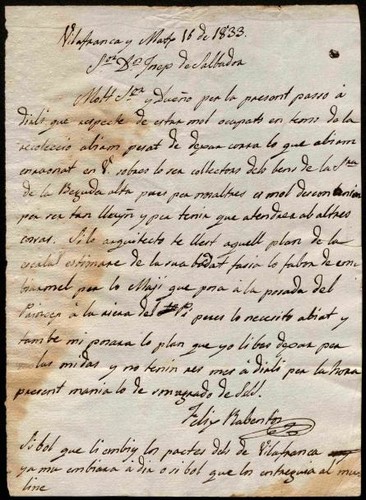 Vilafranca y Maig 16 de 1833.
Sra. Da. Josepa de Salbadora
Molt Sra. y dueño per la present passo á
dirli que respecte de estar mol ocupats en tems de la
recoleccio abiam pensat de dexar correr lo que abiam
enraonat en Vs. sobre lo ser collectors dels bens de la Sra.
de la Beguda alta pues per nosaltres es mol desconvenien
per ser tan lluny y per tenir que atendrer als altres
cosas. Si lo arquitecto te llest aquell plan de la
escala estimare de la sua bondat fasia lo fabor de en
biarmel per lo Magi que posa á la posada del
á la riera del Pi pues lo necesito abiat y
tambe mi posara lo plan que yo li bex dexar per
las midas y no tenin res mes á dirli per la hora
present mania lo de son agrado de SSS.
Felix Rabentos
Si bol que li embiy los pactes dels de Vilafranca
ya mu embiara á dir o si bol que los entreguia al